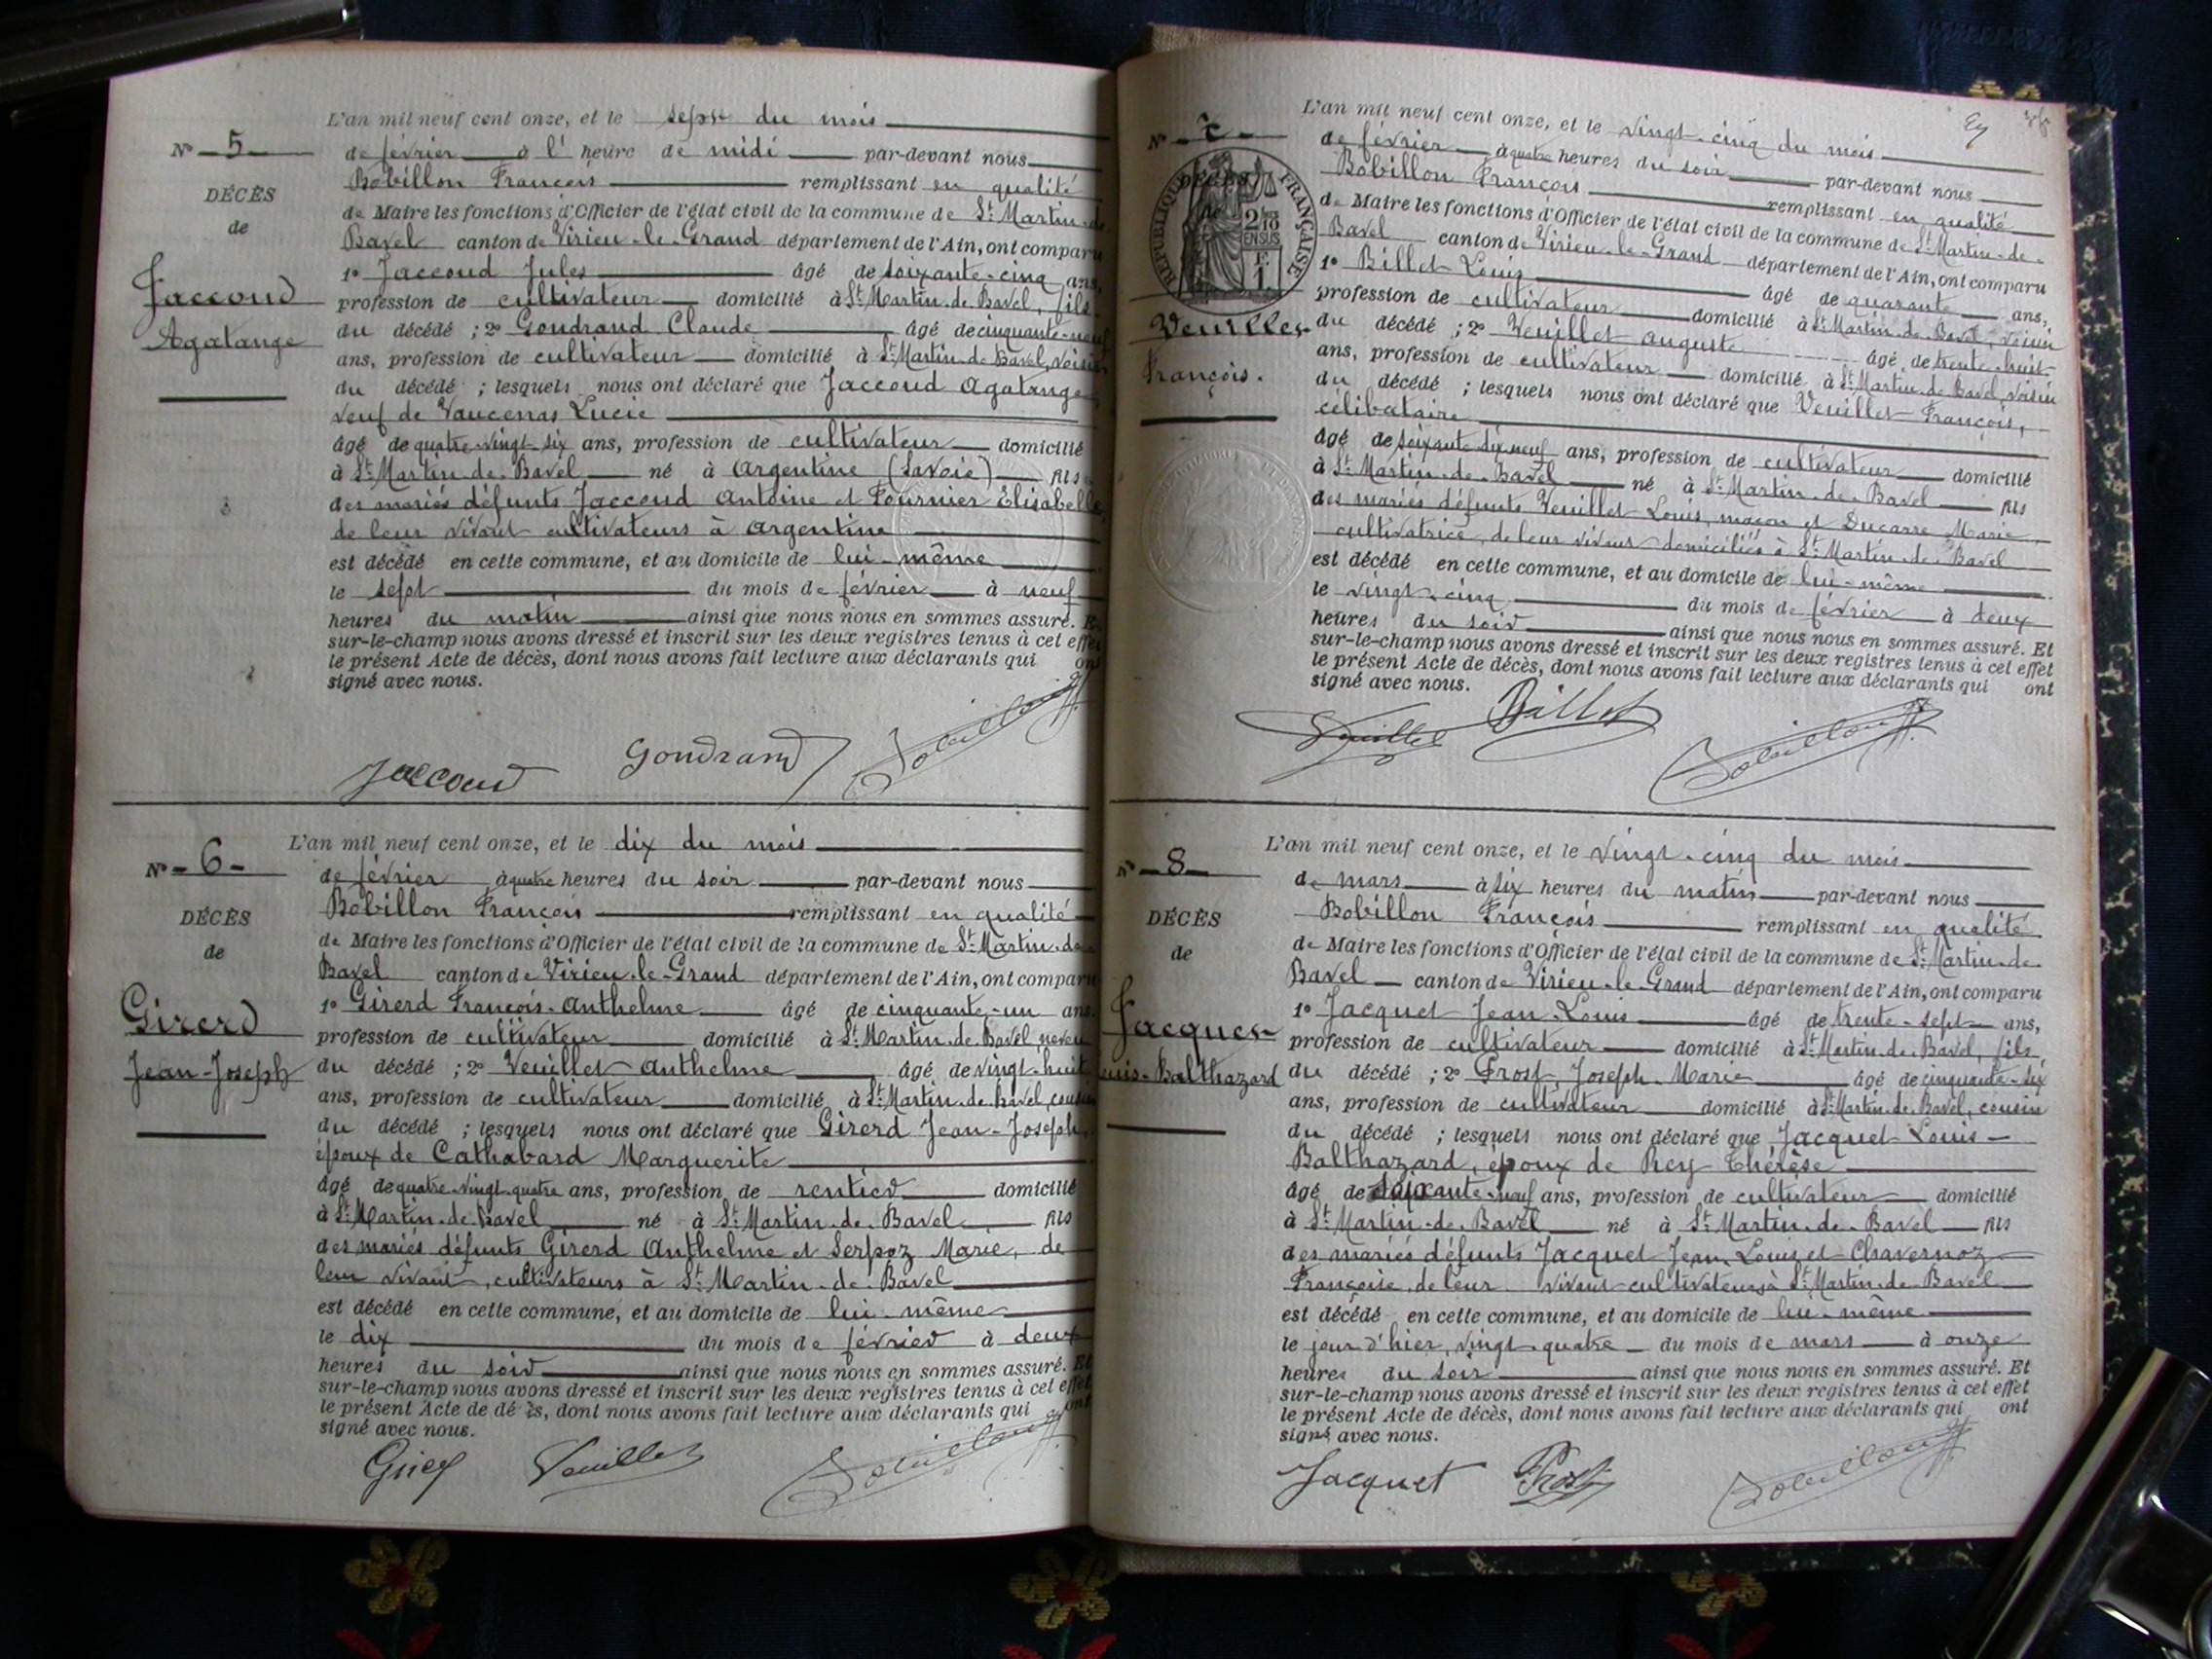 L'an mil neuf cent onze, et le sept du mois
N° 5
de février à l'heure de midi par-devant nous
Bobillon François remplissant en qualité
DÉCÈS
de Maire les fonctions d'Officier de l'état civil de la commune de St Martin-de
de
Bavel canton de Virieu-le-Grand département de l'Ain, ont comparu
Jaccoud
Agatange
1° Jaccoud Jules âgé de soixante-cinq ans,
profession de cultivateur domicilié à St Martin-de-Bavel, fils
du décédé ; 2° Gondrand Claude âgé de cinquante-neuf
ans, profession de cultivateur domicilié à St Martin-de-Bavel, voisin
du décédé ; lesquels nous ont déclaré que Jaccoud Agatange
veuf de Vaucenas Lucie
âgé de quatre-vingt-six ans, profession de cultivateur domicilié
à St Martin-de-Bavel né à Argentine (Savoie) fils
des mariés défunts Jaccoud Antoine et Fournier Élisabelle,
de leur vivant cultivateurs à Argentine
est décédé en cette commune, et au domicile de lui-même
le sept du mois de février à neuf
heures du matin ainsi que nous nous en sommes assuré. Et
sur-le-champ nous avons dressé et inscrit sur les deux registres tenus à cet effet
le présent Acte de décès, dont nous avons fait lecture aux déclarants qui ont
signé avec nous.
Jaccoud Gondrand Bobillon
L'an mil neuf cent onze, et le dix du mois
N° 6
de février à quatre heures du soir par-devant nous
Bobillon François remplissant en qualité
DÉCÈS
de Maire les fonctions d'Officier de l'état civil de la commune de St Martin-de
de
Bavel canton de Virieu-le-Grand département de l'Ain, ont comparu
Girerd
Jean-Joseph
1° Girerd François-Anthelme âgé de cinquante-un ans
profession de cultivateur domicilié à St Martin-de-Bavel neveu
du décédé ; 2° Veuillet Anthelme âgé de vingt-huit
ans, profession de cultivateur domicilié à St Martin-de-Bavel, cousin
du décédé ; lesquels nous ont déclaré que Girerd Jean-Joseph,
époux de Cathabard Marguerite
âgé de quatre-vingt-quatre ans, profession de rentier domicilié
à St Martin-de-Bavel né à St Martin-de-Bavel fils
des mariés défunts Girerd Anthelme et Serpoz Marie, de
leur vivant, cultivateurs à St Martin-de-Bavel
est décédé en cette commune, et au domicile de lui-même
le dix du mois de février à deux
heures du soir ainsi que nous nous en sommes assuré. Et
sur-le-champ nous avons dressé et inscrit sur les deux registres tenus à cet effet
le présent Acte de dé ès, dont nous avons fait lecture aux déclarants qui ont
signé avec nous.
Girerd Veuillet Bobillon
L'an mil neuf cent onze, et le vingt-cinq du mois
N° 7
de février à quatre heures du soir par-devant nous
Bobillon François remplissant en qualité
RÉPUBLIQUE FRANÇAISE
2/10
EN SUS
F.
1
DÉCÈS
de Maire les fonctions d'Officier de l'état civil de la commune de St Martin-de-
de
Bavel canton de Virieu-le-Grand département de l'Ain, ont comparu
Veuillet
François.
1° Billet Louis âgé de quarante ans,
profession de cultivateur domicilié à St Martin-de-Bavel, voisin
du décédé ; 2° Veuillet Auguste âgé de trente-huit
ans, profession de cultivateur domicilié à St Martin-de-Bavel, voisin
du décédé ; lesquels nous ont déclaré que Veuillet François,
célibataire
âgé de soixante-dix-neuf ans, profession de cultivateur domicilié
à St Martin-de-Bavel né à St Martin-de-Bavel fils
des mariés défunts Veuillet Louis, maçon et Ducarre Marie,
cultivatrice, de leur vivant domiciliés à St Martin-de-Bavel
est décédé en cette commune, et au domicile de lui-même
le vingt-cinq du mois de février à deux
heures du soir ainsi que nous nous en sommes assuré. Et
sur-le-champ nous avons dressé et inscrit sur les deux registres tenus à cet effet
le présent Acte de décès, dont nous avons fait lecture aux déclarants qui ont
signé avec nous.
Veuillet Billet Bobillon
L'an mil neuf cent onze, et le vingt-cinq du mois
N° 8
de mars à six heures du matin par-devant nous
Bobillon François remplissant en qualité
DÉCÈS
de Maire les fonctions d'Officier de l'état civil de la commune de St Martin-de
de
Bavel canton de Virieu-le-Grand département de l'Ain, ont comparu
Jacquet
Louis-Balthazard
1° Jacquet Jean-Louis âgé de trente-sept ans,
profession de cultivateur domicilié à St Martin-de-Bavel, fils
du décédé ; 2° Prost Joseph-Marie âgé de cinquante-six
ans, profession de cultivateur domicilié à St Martin-de-Bavel, cousin
du décédé ; lesquels nous ont déclaré que Jacquet Louis-
Balthazard, époux de Rey Thérèse
âgé de soixante-neuf ans, profession de cultivateur domicilié
à St Martin-de-Bavel né à St Martin-de-Bavel fils
des mariés défunts Jacquet Jean-Louis et Chavernoz
Françoise, de leur vivant cultivateurs à St Martin-de-Bavel
est décédé en cette commune, et au domicile de lui-même
le jour d'hier, vingt-quatre du mois de mars à onze
heures du soir ainsi que nous nous en sommes assuré. Et
sur-le-champ nous avons dressé et inscrit sur les deux registres tenus à cet effet
le présent Acte de décès, dont nous avons fait lecture aux déclarants qui ont
signé avec nous.
Jacquet Prost Bobillon